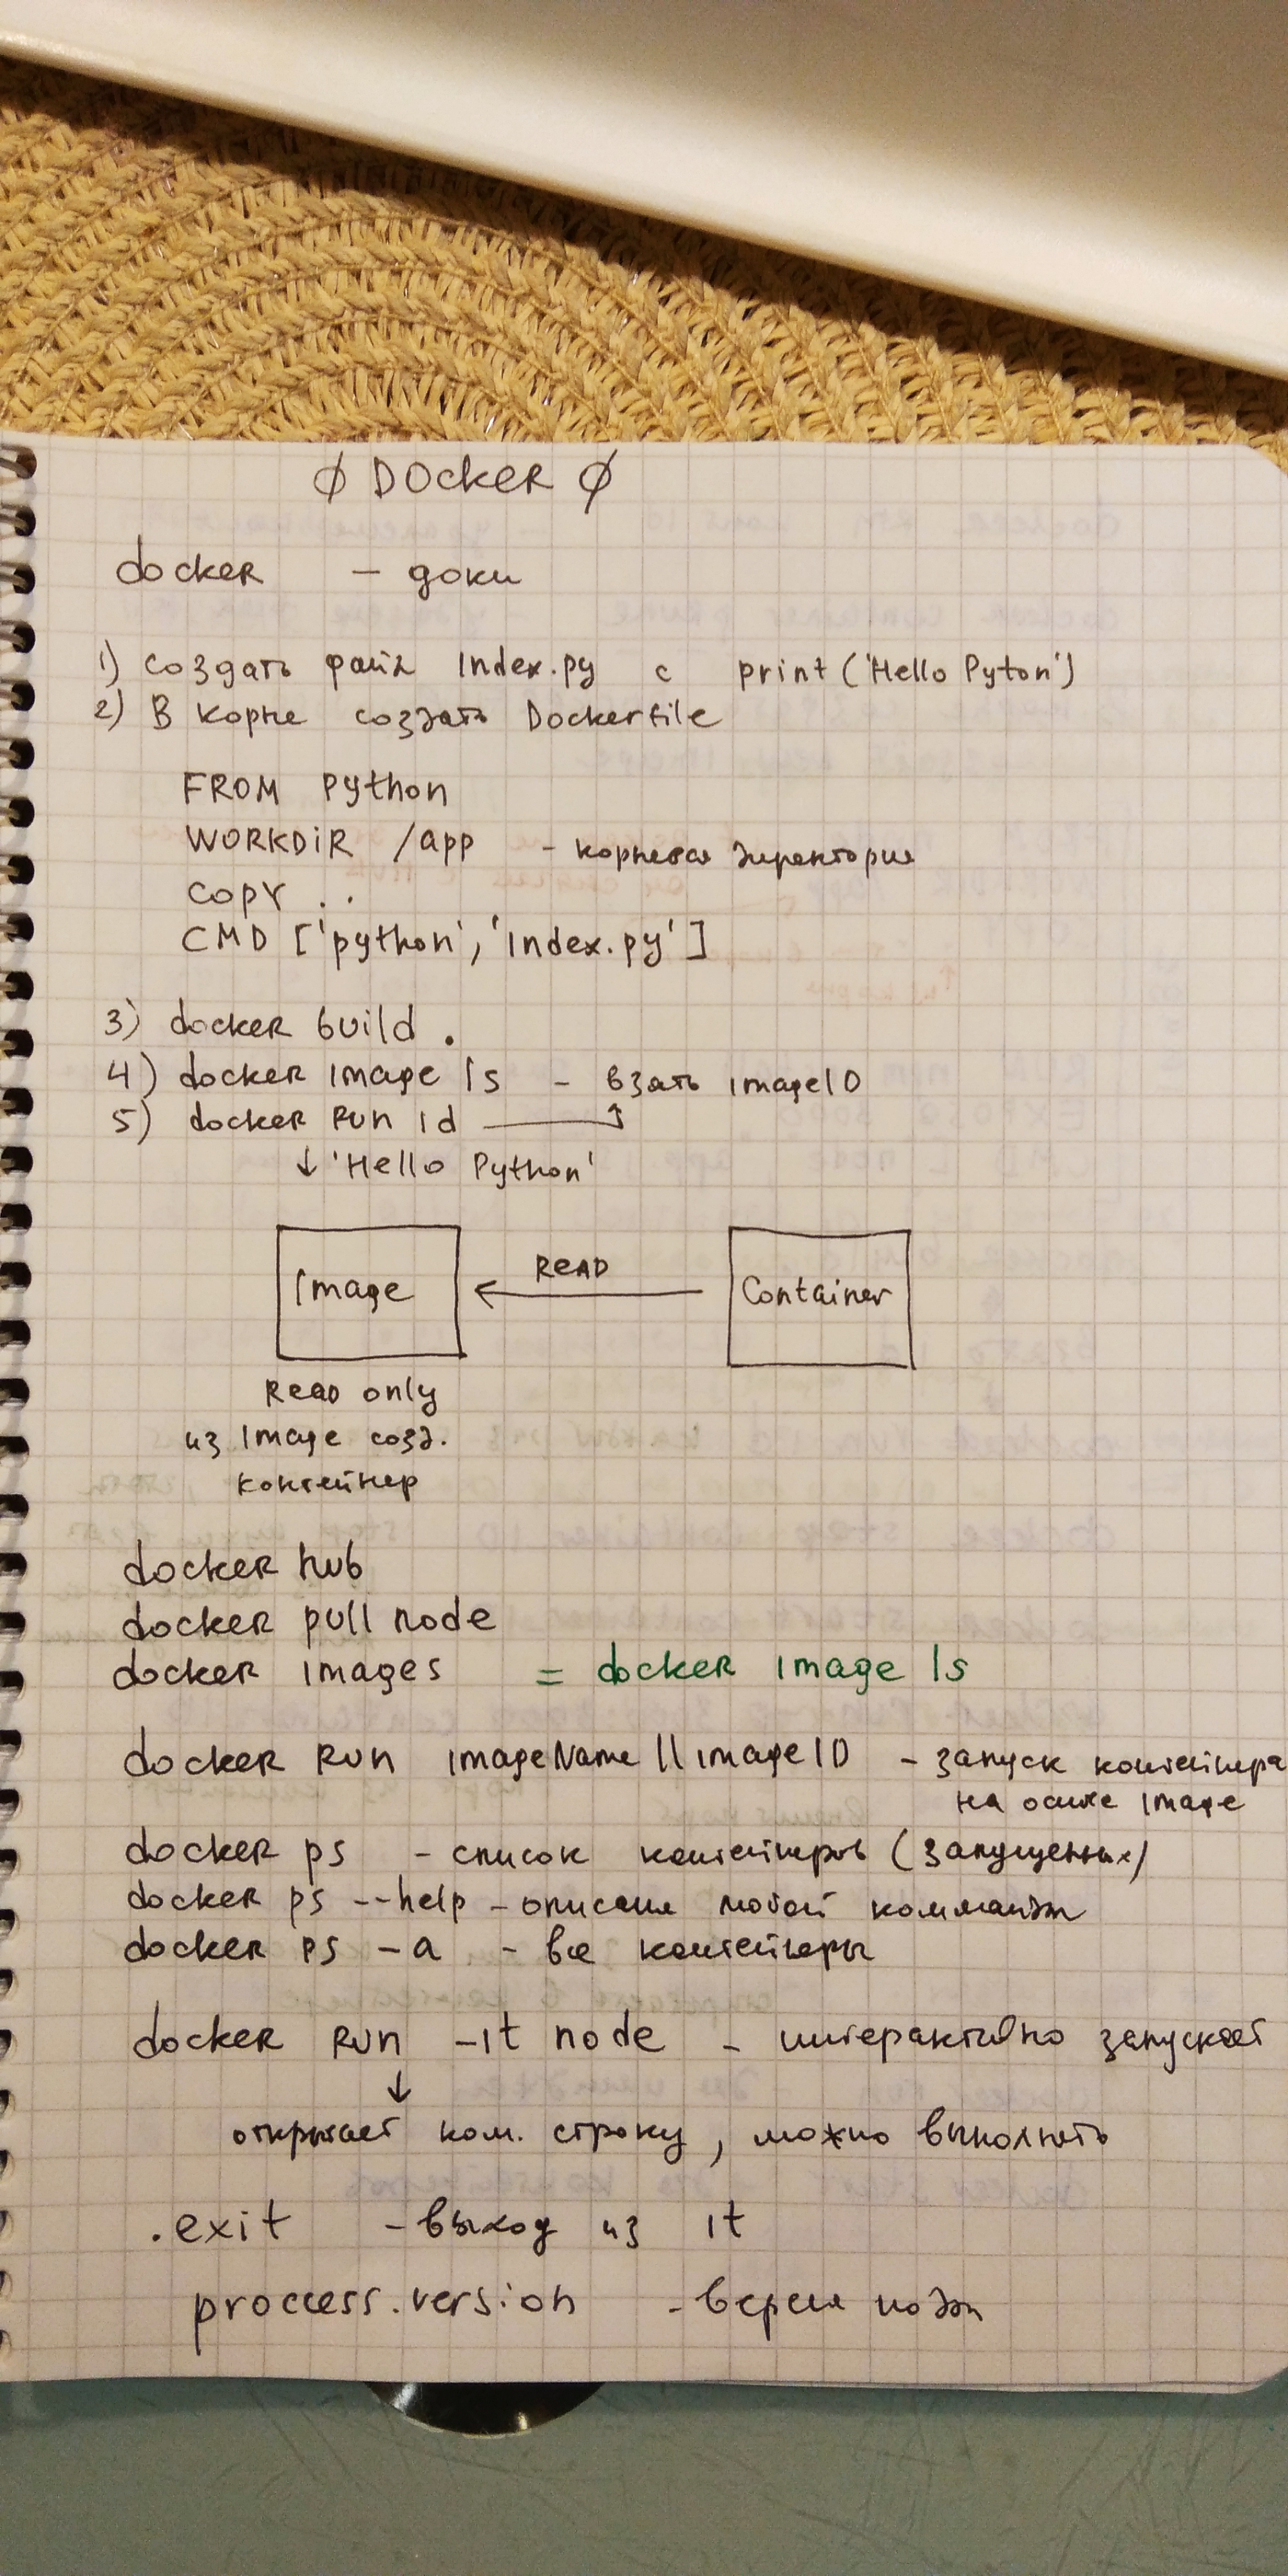 ∅ DOCKER ∅
docker - доки
1) создать файл index.py с print('Hello Pyton')
2) В корне создать Dockerfile
FROM python
WORKDIR /app - корневая директория
COPY . .
CMD ['python', 'index.py']
3) docker build .
4) docker image ls - взать imageID
5) docker run id
↓ 'Hello Python'
Image
READ
Container
Read only
из Image созд.
контейнер
docker hub
docker pull node
docker images = docker image ls
docker run imageName || imageID - запуск контейнера
на основе image
docker ps - список контейнеров (запущенных)
docker ps --help - описание любой комманды
docker ps -a - все контейнеры
docker run -it node - интерактивно запускает
↓
открывает ком. строку, можно выполнять
.exit - выход из it
proccess.version - версия ноды